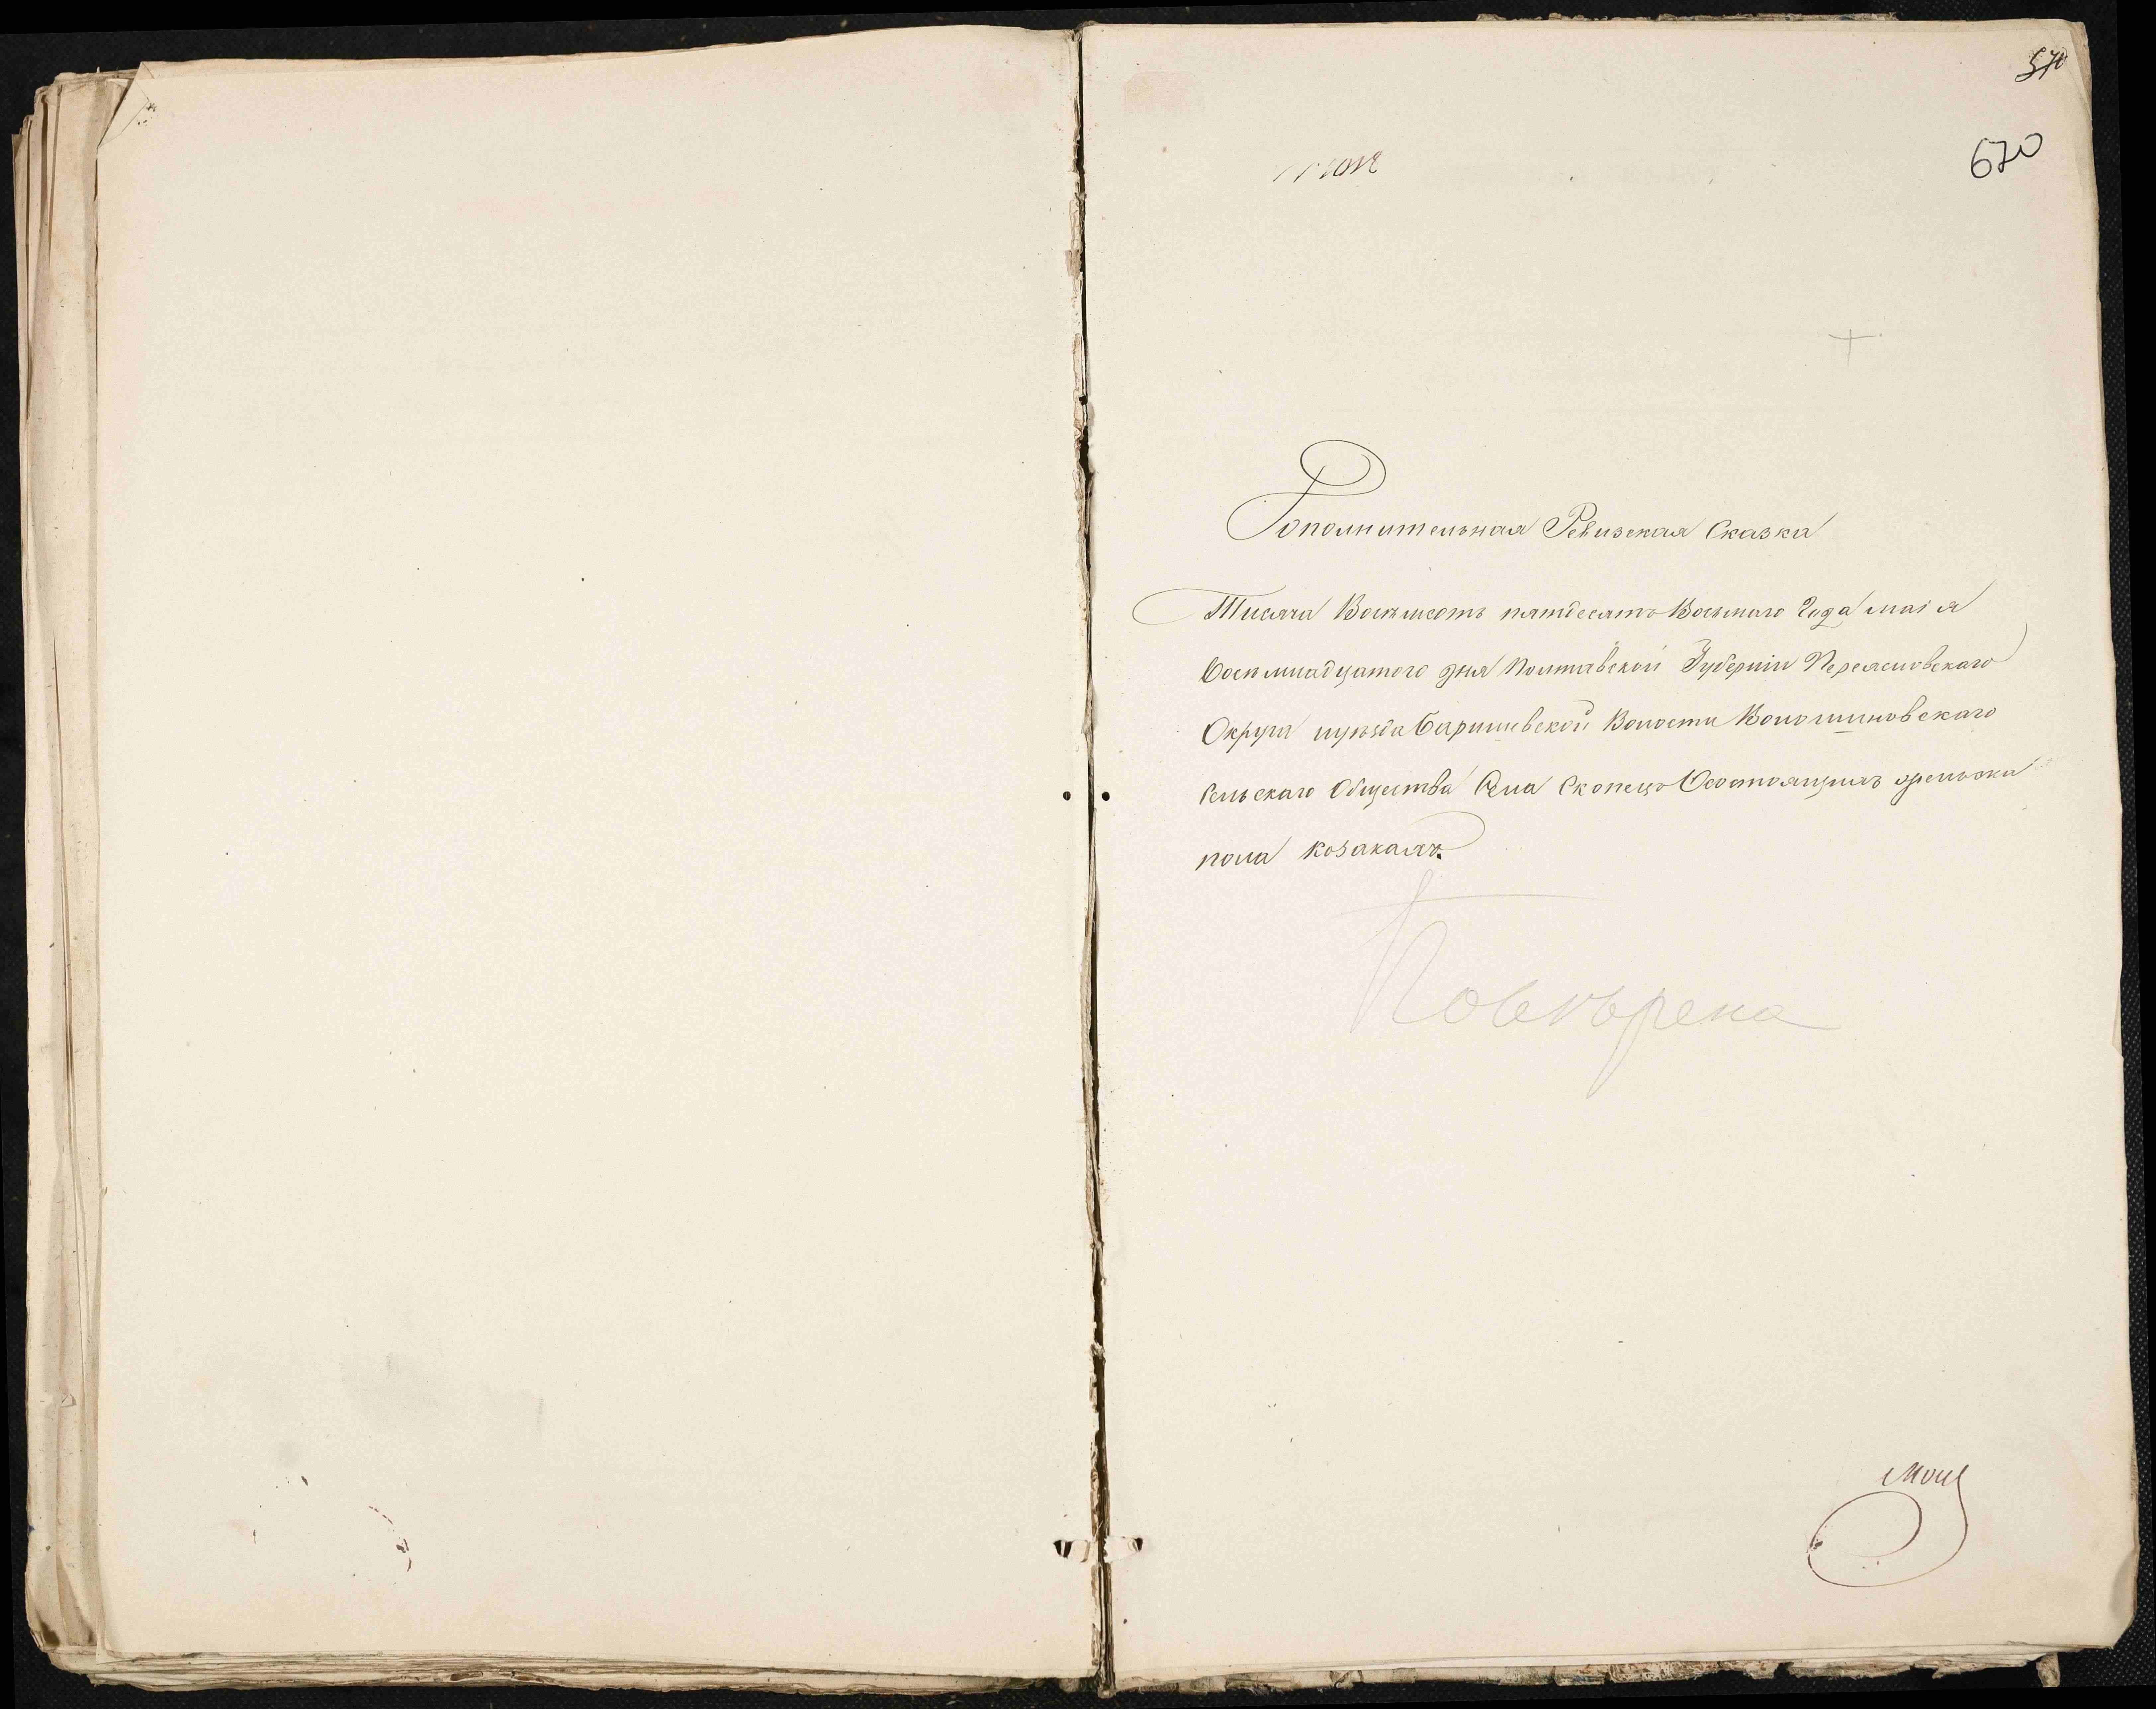 570
670
Дополнительная Ревизская Сказка
Тисяча Восѣмсотъ пятдесятъ Восмаго Года маія
Восѣмнадцатого дня Полтавской Губерніи Переясловскаго
Округа иуѣзда Баришевской Волости Волошиновскаго
Сельскаго Общества Села Скопецъ Состоящимъ женска
пола козакамъ.
Повѣрена